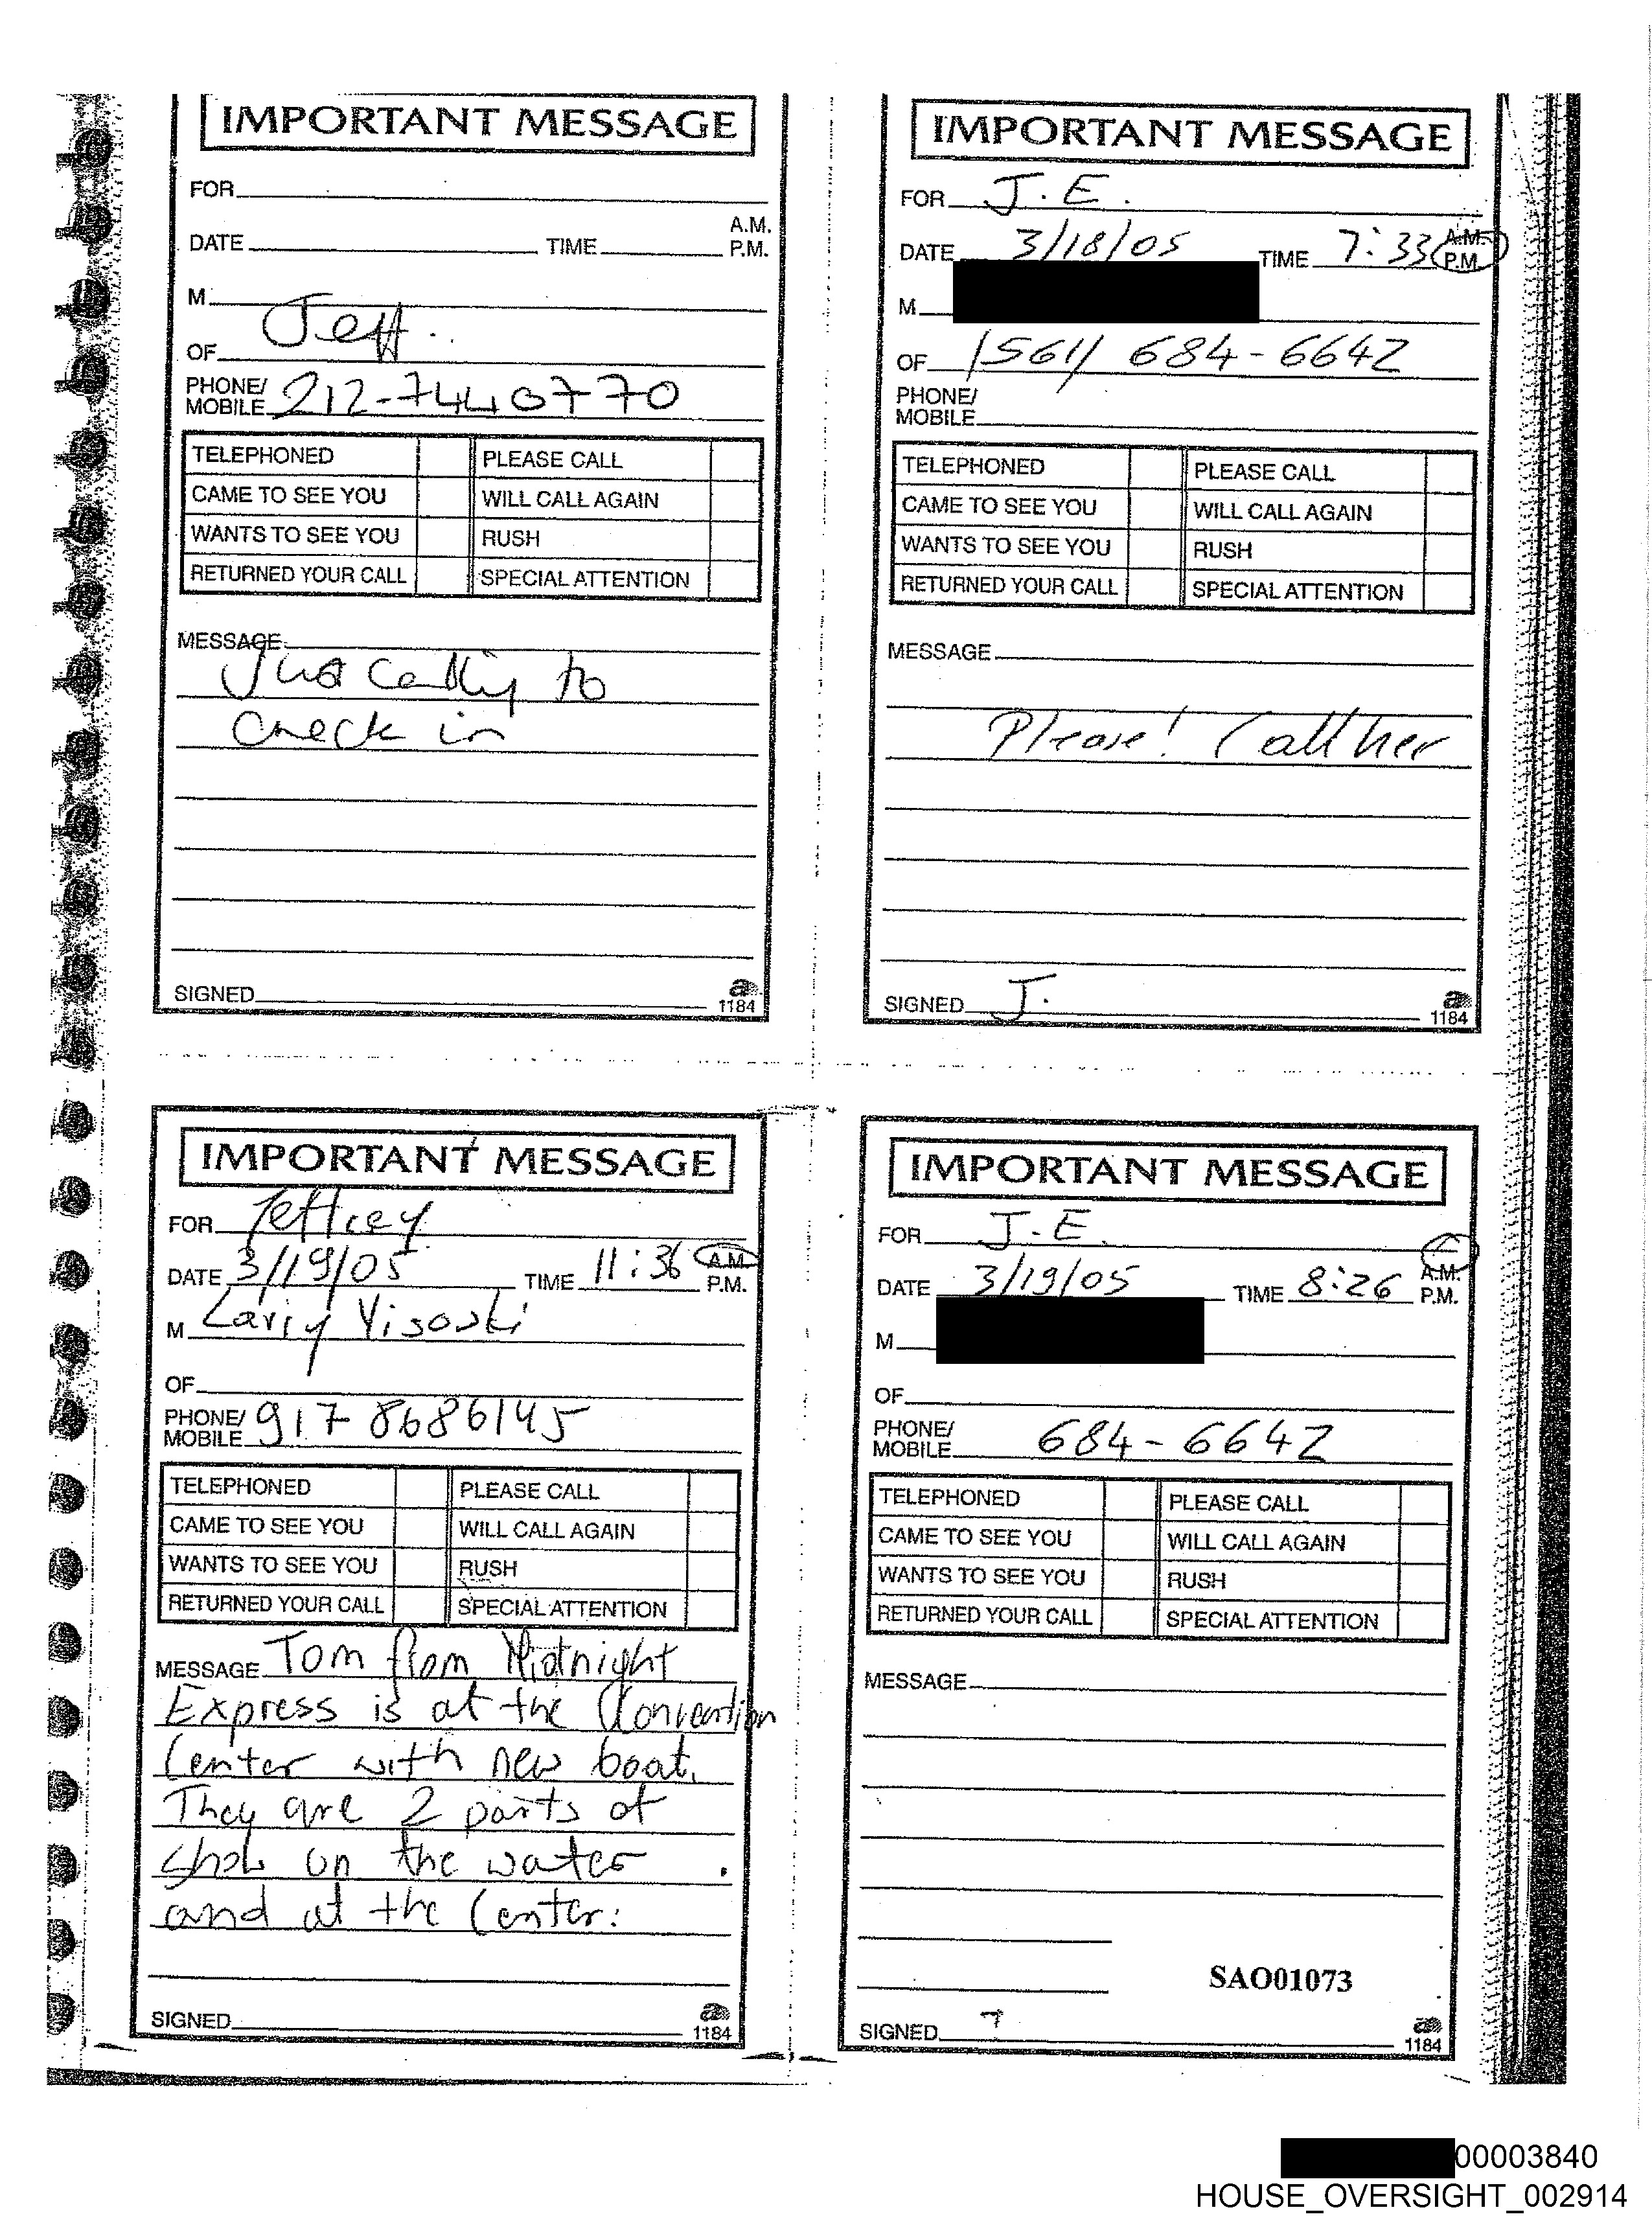 IMPORTANT MESSAGE
FOR
DATE TIME A.M. P.M.
M
OF Jeff.
PHONE/ MOBILE 212-7440770
TELEPHONED PLEASE CALL
CAME TO SEE YOU WILL CALL AGAIN
WANTS TO SEE YOU RUSH
RETURNED YOUR CALL SPECIAL ATTENTION
MESSAGE
Just calling to
check in
SIGNED
a
1184
IMPORTANT MESSAGE
FOR J.E.
DATE 3/18/05 TIME 7:33 A.M. P.M.
M
OF (561) 684-6642
PHONE/
MOBILE
TELEPHONED PLEASE CALL
CAME TO SEE YOU WILL CALL AGAIN
WANTS TO SEE YOU RUSH
RETURNED YOUR CALL SPECIAL ATTENTION
MESSAGE
Please! Call her
SIGNED J.
a
1184
IMPORTANT MESSAGE
FOR Jeffrey
DATE 3/19/05 TIME 11:36 A.M. P.M.
M Larry Visoski
OF
PHONE/ MOBILE 917 8686145
TELEPHONED PLEASE CALL
CAME TO SEE YOU WILL CALL AGAIN
WANTS TO SEE YOU RUSH
RETURNED YOUR CALL SPECIAL ATTENTION
MESSAGE Tom from Midnight
Express is at the Convention
Center with new boat.
They are 2 parts of
show on the water
and at the Center.
SIGNED
a
1184
IMPORTANT MESSAGE
FOR J.E.
DATE 3/19/05 TIME 8:26 A.M. P.M.
M
OF
PHONE/ MOBILE 684-6642
TELEPHONED PLEASE CALL
CAME TO SEE YOU WILL CALL AGAIN
WANTS TO SEE YOU RUSH
RETURNED YOUR CALL SPECIAL ATTENTION
MESSAGE
SAO01073
SIGNED
a
1184
00003840
HOUSE_OVERSIGHT_002914